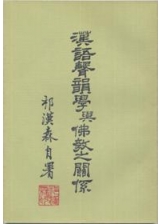 漢語聲韻學與佛教之關係
祁漢森自署